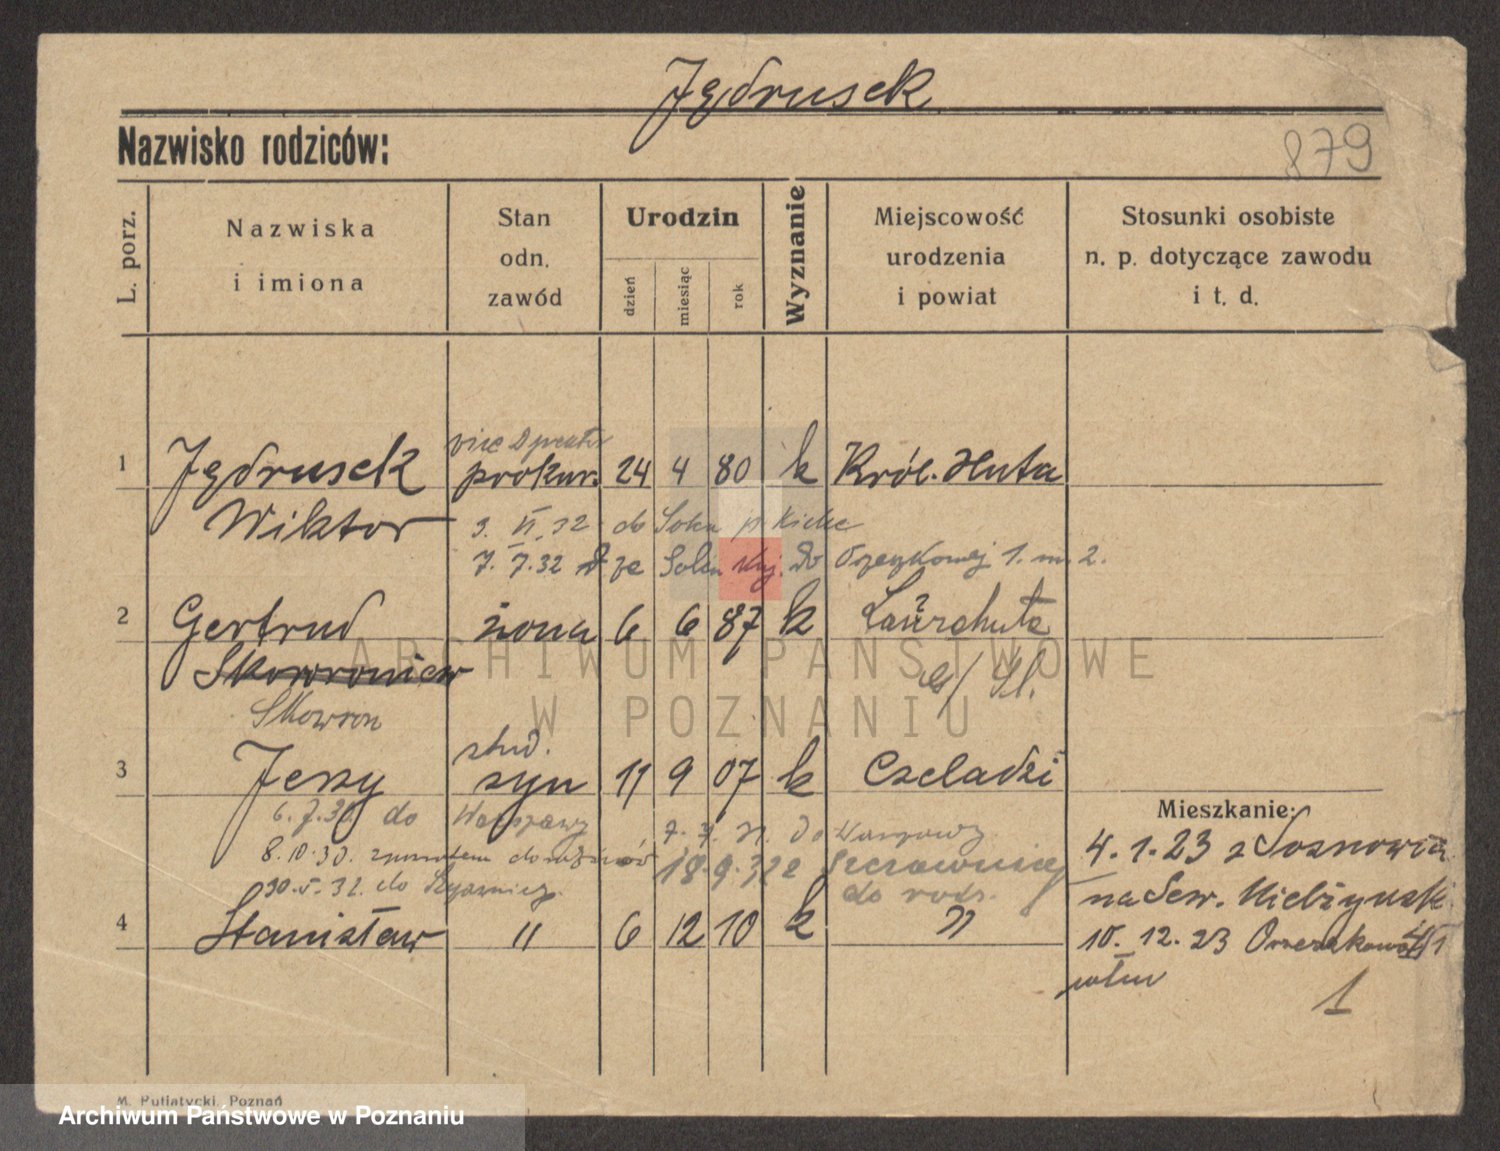 Jędrusek
Nazwisko rodziców:
879
L. porz.
Nazwiska
i imiona
Stan
odn.
zawód
Urodzin
dzień
miesiąc
rok
Wyznanie
Miejscowość
urodzenia
i powiat
Stosunki osobiste
n. p. dotyczące zawodu
i t. d.
vice
1 Jędrusek prokur. 24 4 80 k Król. Huta
Wiktor
3. VI. 32 do
7. 7. 32 ze do 1. m. 2.
2 Gertrud żona 6 6 87 k Laurahuta
Skowroniew
G/Śl.
Skowron
stud.
3 Jerzy syn 11 9 07 k Czeladzi
Mieszkanie:
6. 7. 30 do Warszawy do Warszawy
4. 1. 23 z Sosnowca
8. 10. 30. 18. 9. 32 z Szczawnicy
30. 5. 32. do do rodz.
na Sew. Mielżyński
4 Stanisław " 6 12 10 k "
10. 12. 23
1
M. Putiatycki, Poznań
ARCHIWUM PAŃSTWOWE
W POZNANIU
Archiwum Państwowe w Poznaniu